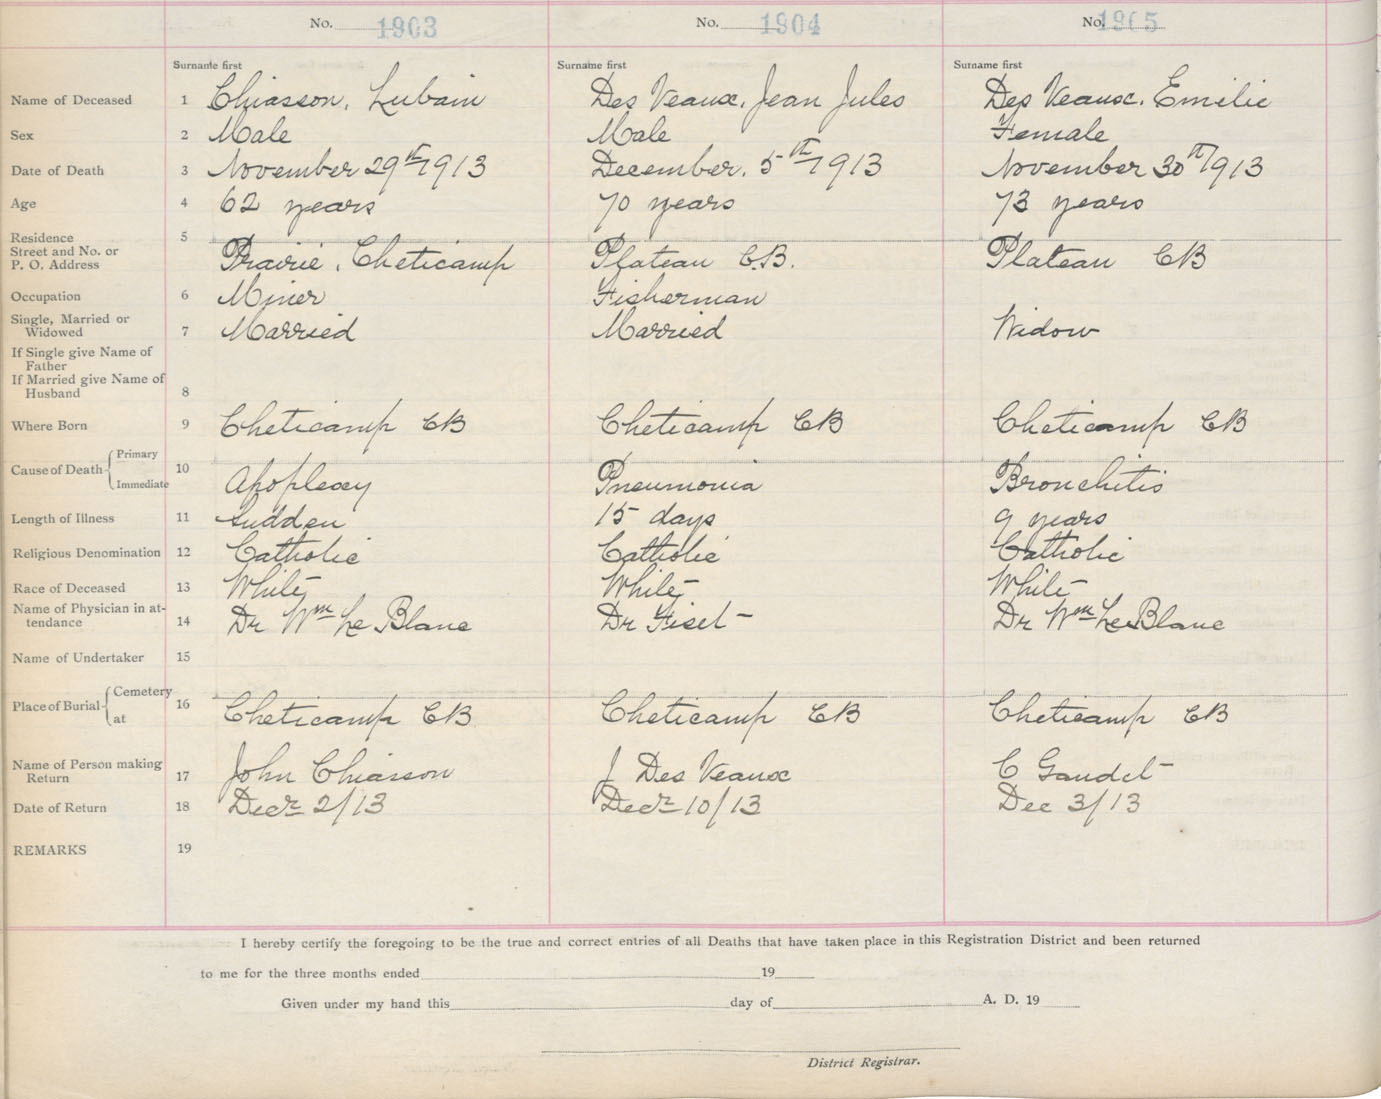 No. 1903 No. 1904 No. 1905
Surname first Surname first Surname first
Name of Deceased 1 Chiasson, Lubain Des Veaux, Jean Jules Des Veaux. Emilie
Sex 2 Male Male Female
Date of Death 3 November 29th 1913 December. 5th 1913 November 30th 1913
Age 4 62 years 70 years 73 years
Residence 5
Street and No. or
P. O. Address Prairie, Cheticamp Plateau C.B. Plateau CB
Occupation 6 Miner Fisherman
Single, Married or
Widowed 7 Married Married Widow
If Single give Name of
Father
If Married give Name of
Husband 8
Where Born 9 Cheticamp CB Cheticamp CB Cheticamp CB
Primary
Cause of Death 10
Immediate Apoplexy Pneumonia Bronchitis
Length of Illness 11 Sudden 15 days 9 years
Religious Denomination 12 Catholic Catholic Catholic
Race of Deceased 13 White White White
Name of Physician in at-
tendance 14 Dr Wm Le Blanc Dr Fiset Dr Wm Le Blanc
Name of Undertaker 15
Cemetery
Place of Burial 16
at Cheticamp CB Cheticamp CB Cheticamp CB
Name of Person making
Return 17 John Chiasson J Des Veaux C Gaudet
Date of Return 18 Decr 2/13 Decr 10/13 Dec 3/13
REMARKS 19
I hereby certify the foregoing to be the true and correct entries of all Deaths that have taken place in this Registration District and been returned
to me for the three months ended 19
Given under my hand this day of A. D. 19
District Registrar.